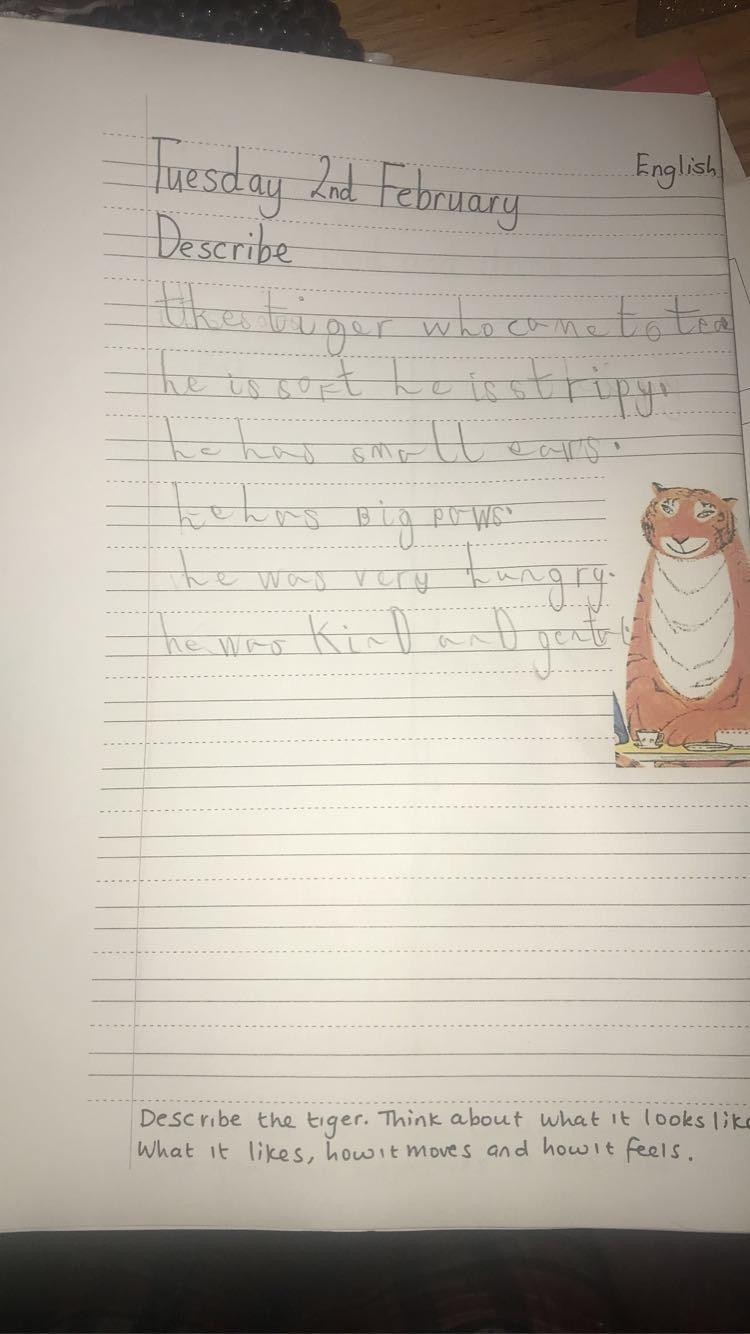 Tuesday 2nd February
English
Describe
the tiger who came to tea
he is soft he is stripy.
he has small ears.
he has Big paws.
he was very hungry.
he was KinD anD
Describe the tiger. Think about what it looks
What it likes, how it moves and how it feels.